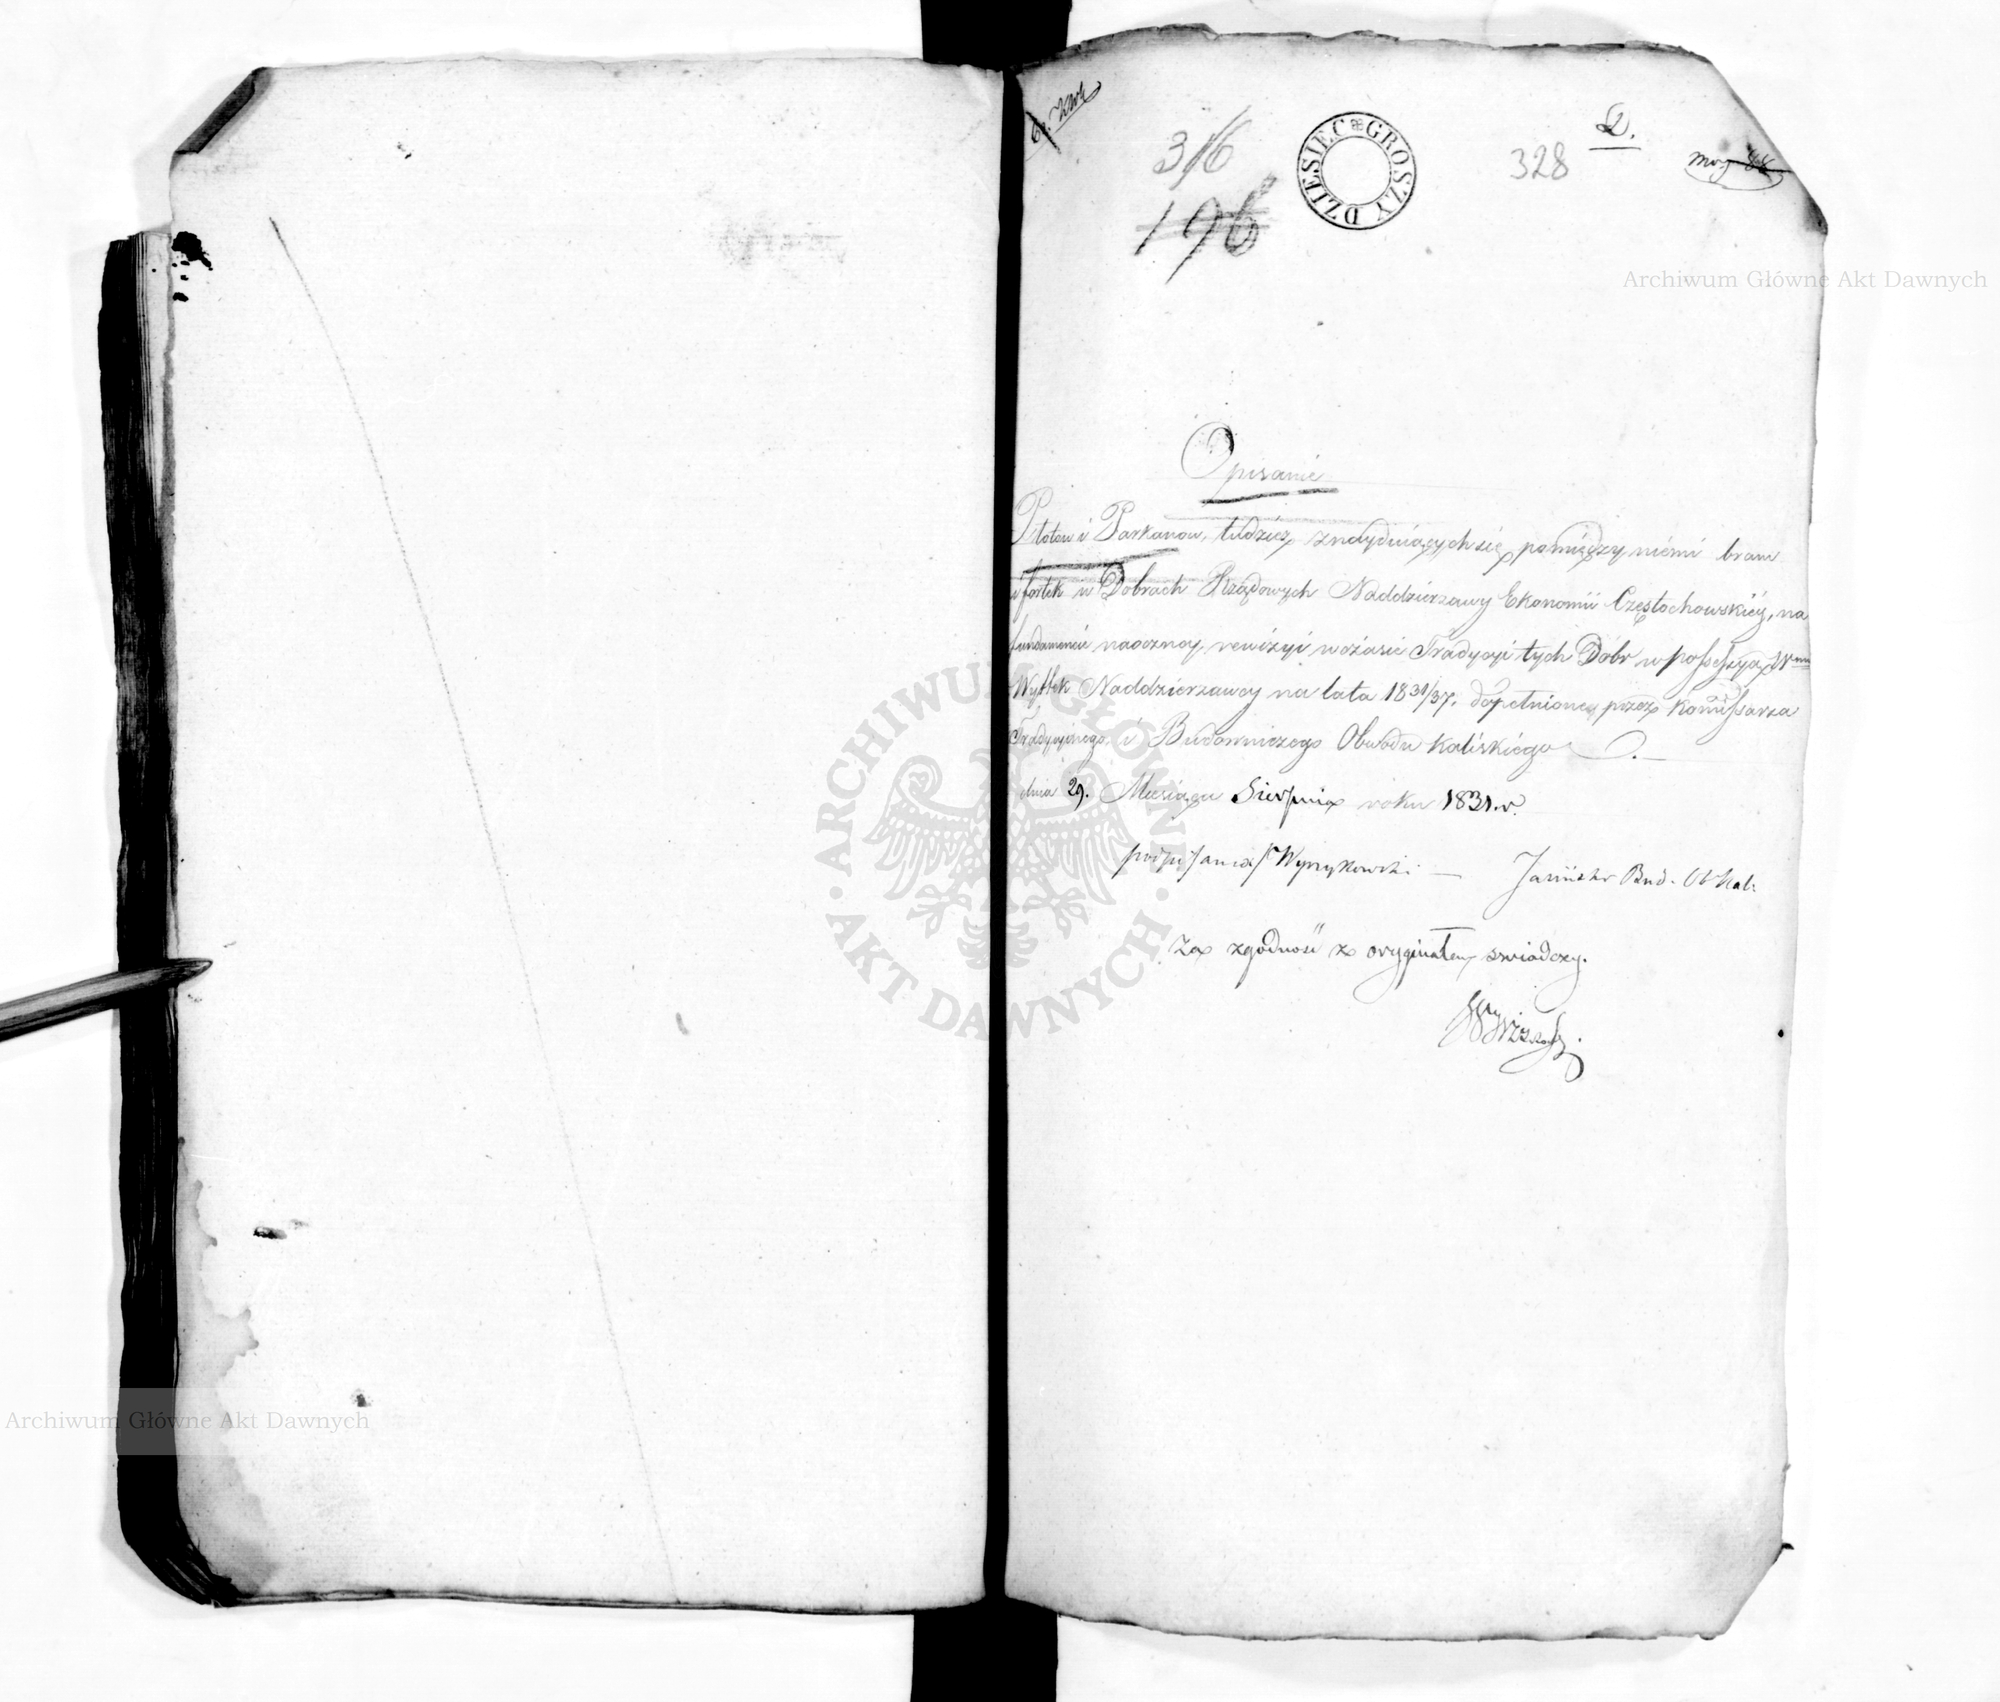 316
196
DZIESIĘC GROSZY
328
D.
Opisanie
Płotów i Parkanow, tudzież znayduiących się pomiędzy niémi bram
i fortek w Dobrach Rządowych Naddzierzawy Ekonomii Częstochowskiéy, na
fundamencie naoczney rewizyi w czasie Tradycyi tych Dobr w possessyą
Naddzierzawcy na lata 1831/37. dopełnioney przez Kommissarza
Tradycyinego i Budowniczego Obwodu Kaliskiego
dnia 29. Miesiąca Sierpnia roku 1831. r.
podpisano Wyrzykowski — Bud. Ob Kal:
Za zgodność z oryginałem swiadczy.
Archiwum Główne Akt Dawnych
Archiwum Główne Akt Dawnych
ARCHIWUM GŁÓWNE · AKT DAWNYCH ·